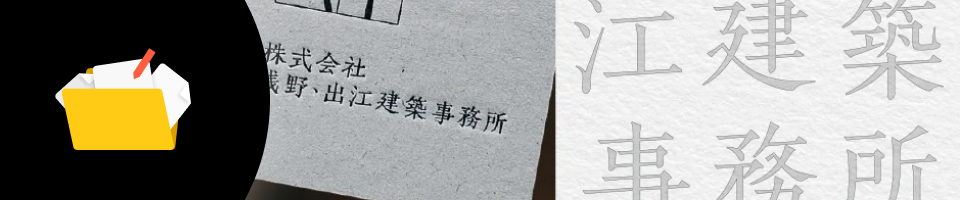 株式会社
浅野、出江建築事務所
江建築
事務所